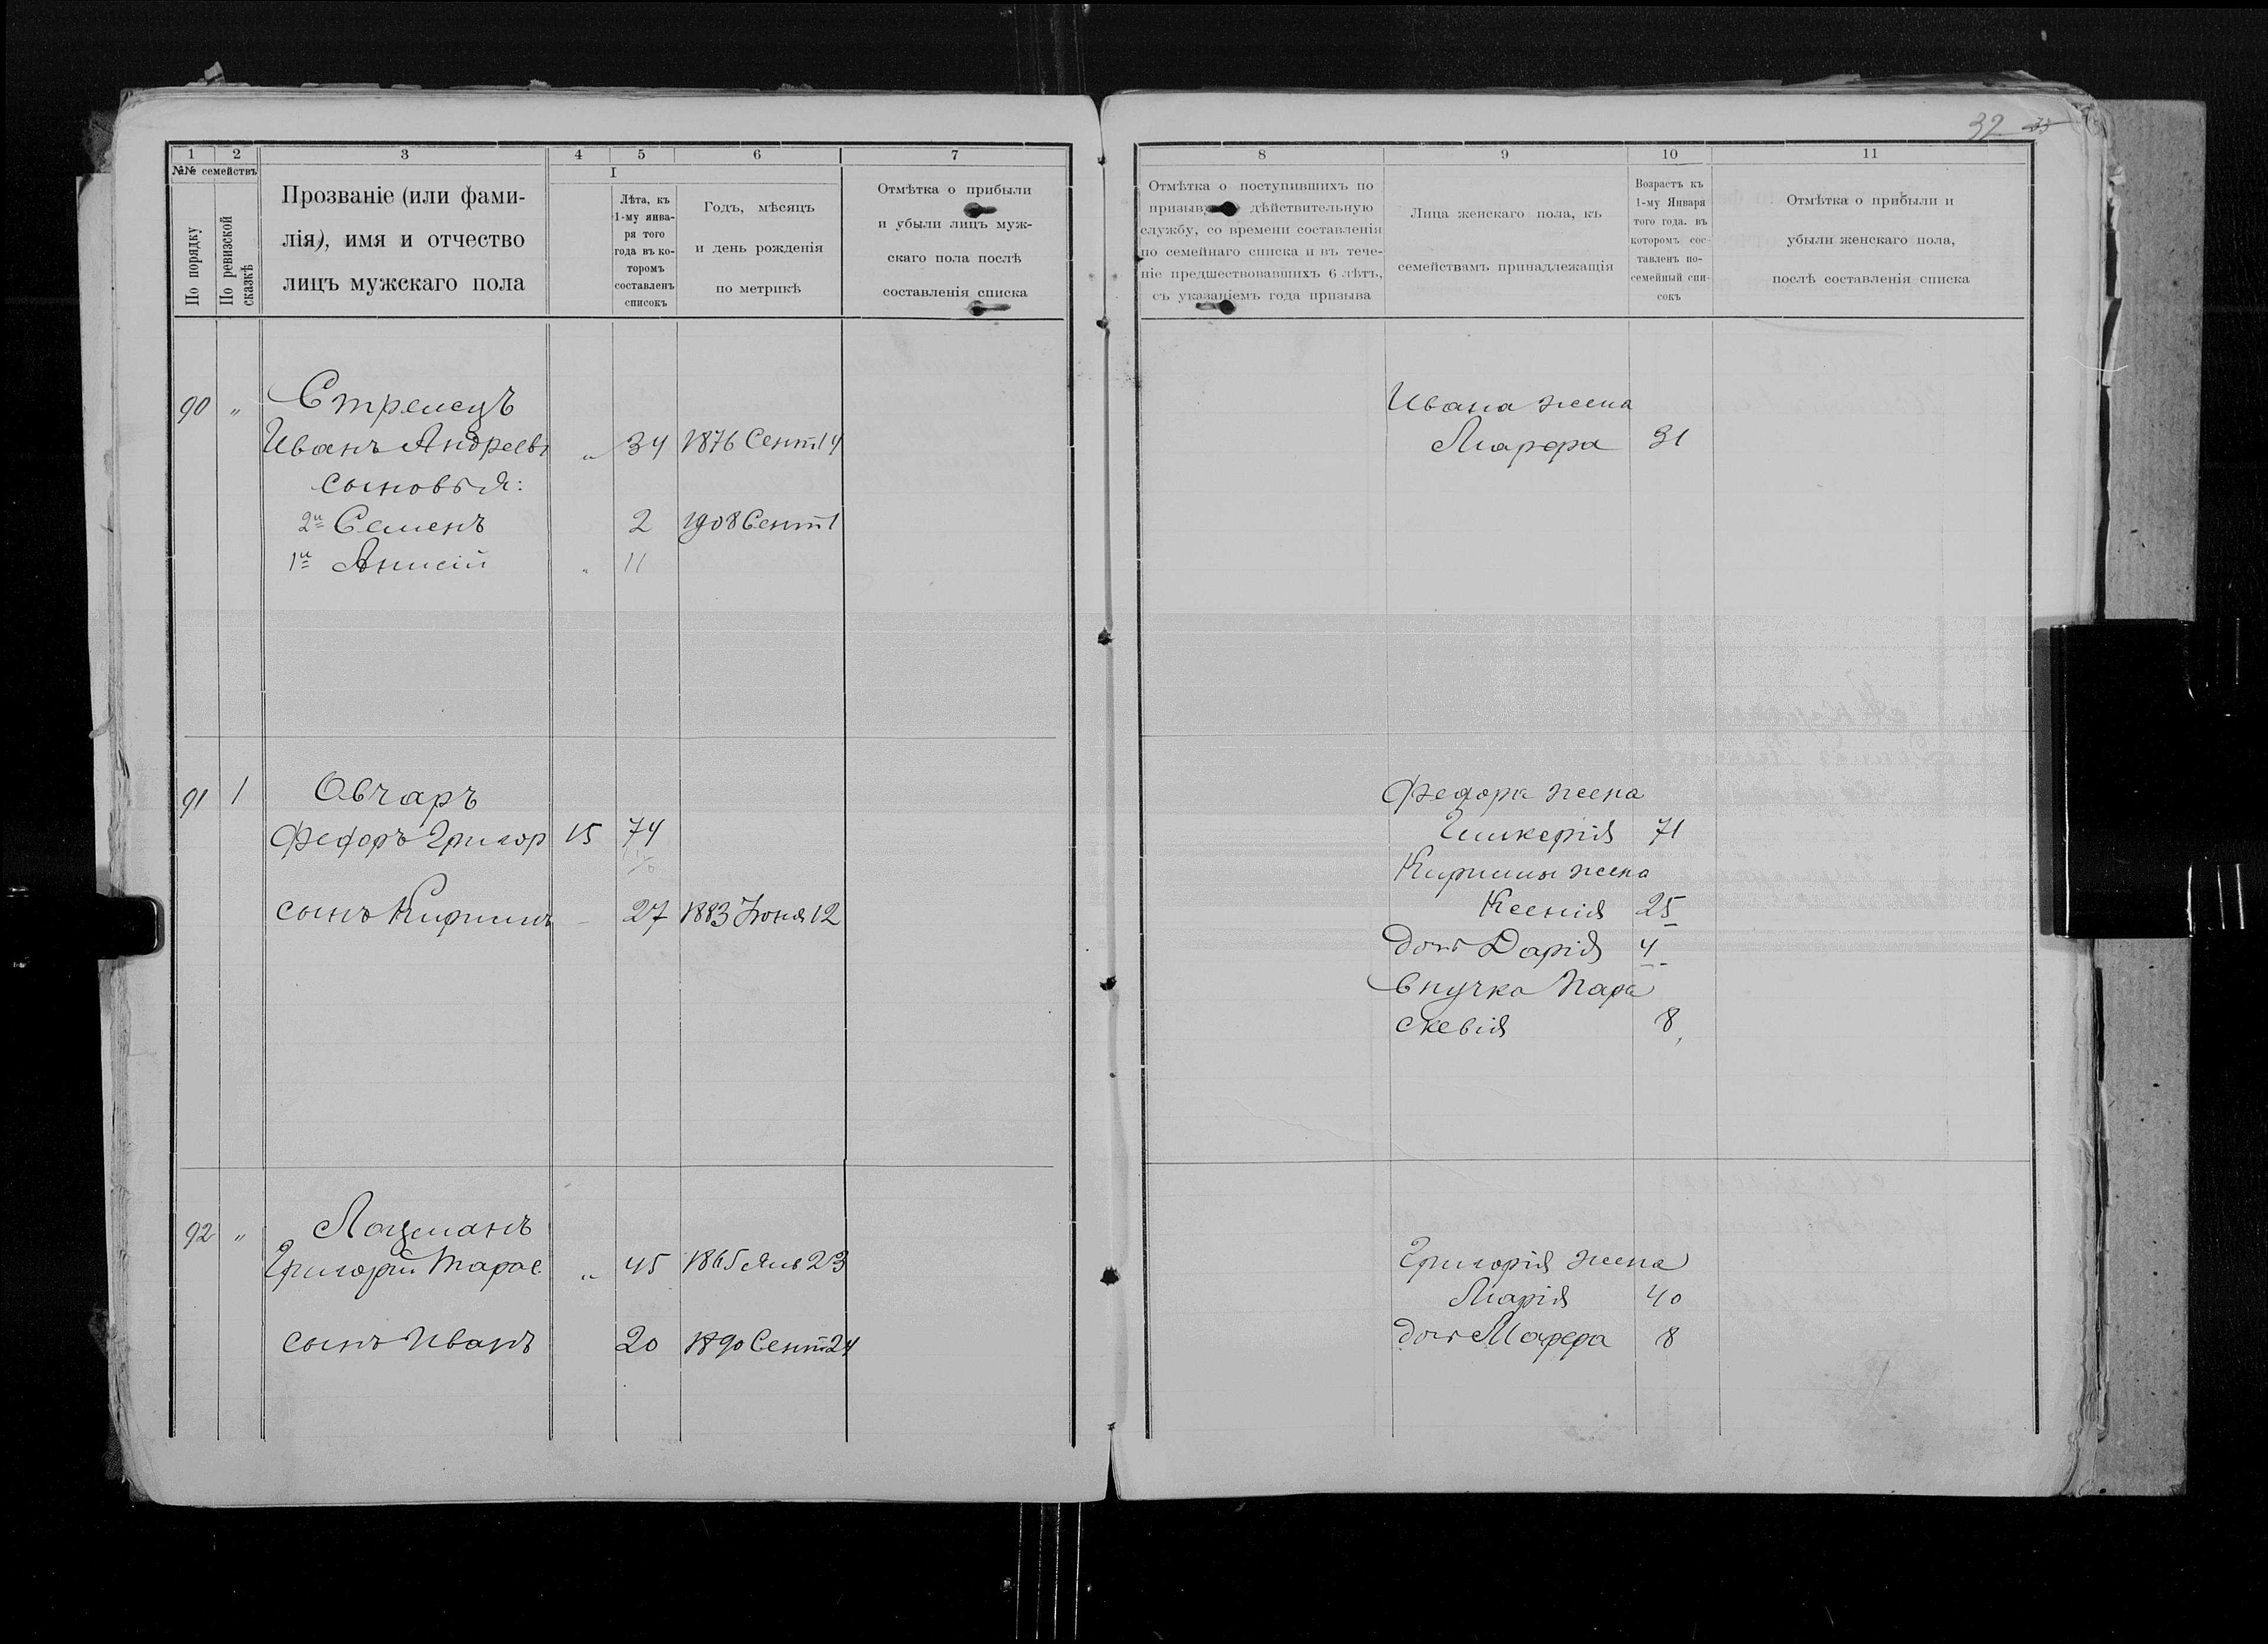 32 35
1 2 3 4 5 6 7
№№ семействъ
По порядку
По ревизской сказкѣ
Прозваніе (или фами-
лія), имя и отчество
лицъ мужскаго пола
I
Лѣта, къ
1-му янва-
ря того
года въ ко-
торомъ
составленъ
списокъ
Годъ, мѣсяцъ
и день рожденія
по метрикѣ
Отмѣтка о прибыли
и убыли лицъ муж-
скаго пола послѣ
составленія списка
90 " Стрелецъ
Иванъ Андреевъ " 34 1876 Сент 14
сыновья:
2й Семенъ 2 1908 Сент 1
1й Анисій " 11
91 1 Овчаръ
Федоръ Григор 15 74
сынъ Кирилъ - 27 1883 Іюня 12
92 " Лоцманъ
Григорій Тарас. " 45 1865 Янв 23
сынъ Иванъ 20 1890 Сент 24
8 9 10 11
Отмѣтка о поступившихъ по
призыву дѣйствительную
службу, со времени составленія
по семейнаго списка и въ тече-
ніе предшествовавшихъ 6 лѣтъ,
съ указаніемъ года призыва
Лица женскаго пола, къ
семействамъ принадлежащія
Возрастъ къ
1-му Января
того года. въ
которомъ сос-
тавленъ по-
семейный спи-
сокъ
Отмѣтка о прибыли и
убыли женскаго пола,
послѣ составленія списка
Ивана жена
Марфа 31
Федора жена
Гликерія 71
Кирилы жена
Ксенія 25
дочь Дарія 4
внучка Пара
скевія 8
Григорія жена
Марія 40
дочь Марфа 8